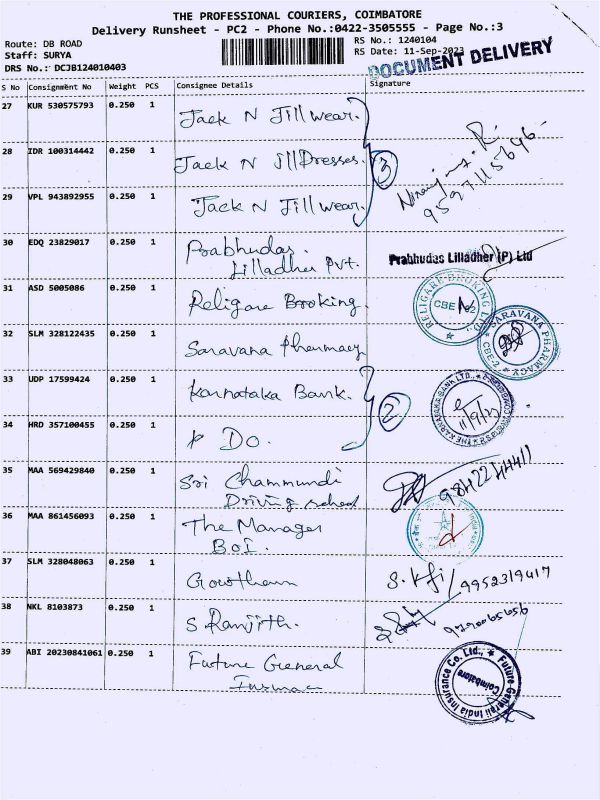 THE PROFESSIONAL COURIERS, COIMBATORE
Delivery Runsheet - PC2 - Phone No.:0422-3505555 - Page No.:3
Route: DB ROAD
Staff: SURYA
DRS No.: DCJB124010403
RS No.: 1240104
RS Date: 11-Sep-2023
DOCUMENT DELIVERY
S No Consignment No Weight PCS Consignee Details Signature
27 KUR 530575793 0.250 1 Jack N Jill wear.
28 IDR 100314442 0.250 1 Jack N Jill Dresses. 3
9597115696
29 VPL 943892955 0.250 1 Jack N Jill wear.
30 EDQ 23829017 0.250 1 Prabhudas.
Lilladher Pvt.
Prabhudas Lilladher (P) Ltd
31 ASD 5005086 0.250 1 Religare Broking.
RELIGARE BROKING LTD.
CBE
32 SLM 328122435 0.250 1 Saravana Pharmacy
SARAVANA PHARMACY
CBE-2
33 UDP 17599424 0.250 1 Karnataka Bank.
2
THE KARNATAKA BANK LTD.,
11/9/23
34 HRD 357100455 0.250 1 Do.
35 MAA 569429840 0.250 1 Sri Chammundi
Driving school
36 MAA 861456093 0.250 1 The Manager
BOI.
37 SLM 328048063 0.250 1 Gowtham
9952319417
38 NKL 8103873 0.250 1 S Ranjith.
9790065656
39 ABI 20230841061 0.250 1 Future General
Future Generali India Insurance Co. Ltd.,
Coimbatore